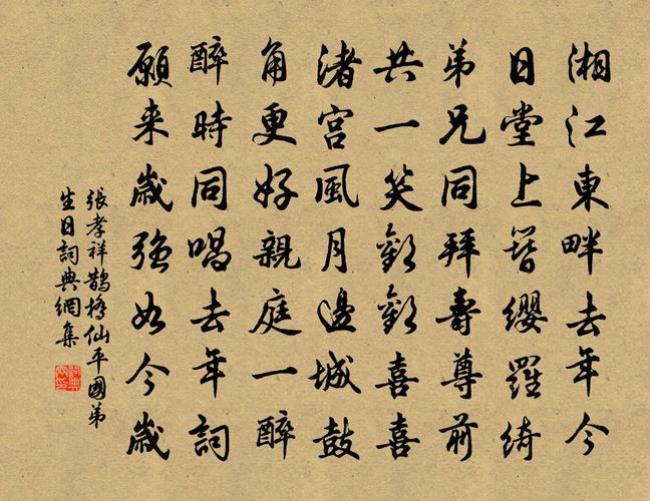 湘江東畔去年今
日堂上簪纓羅綺
弟兄同拜壽尊前
共一笑歡歡喜喜
渚宮風月邊城鼓
角更好親庭一醉
醉時同唱去年詞
願来歲強如今歲
張孝祥鵲橋仙平國弟
生日詞典網集